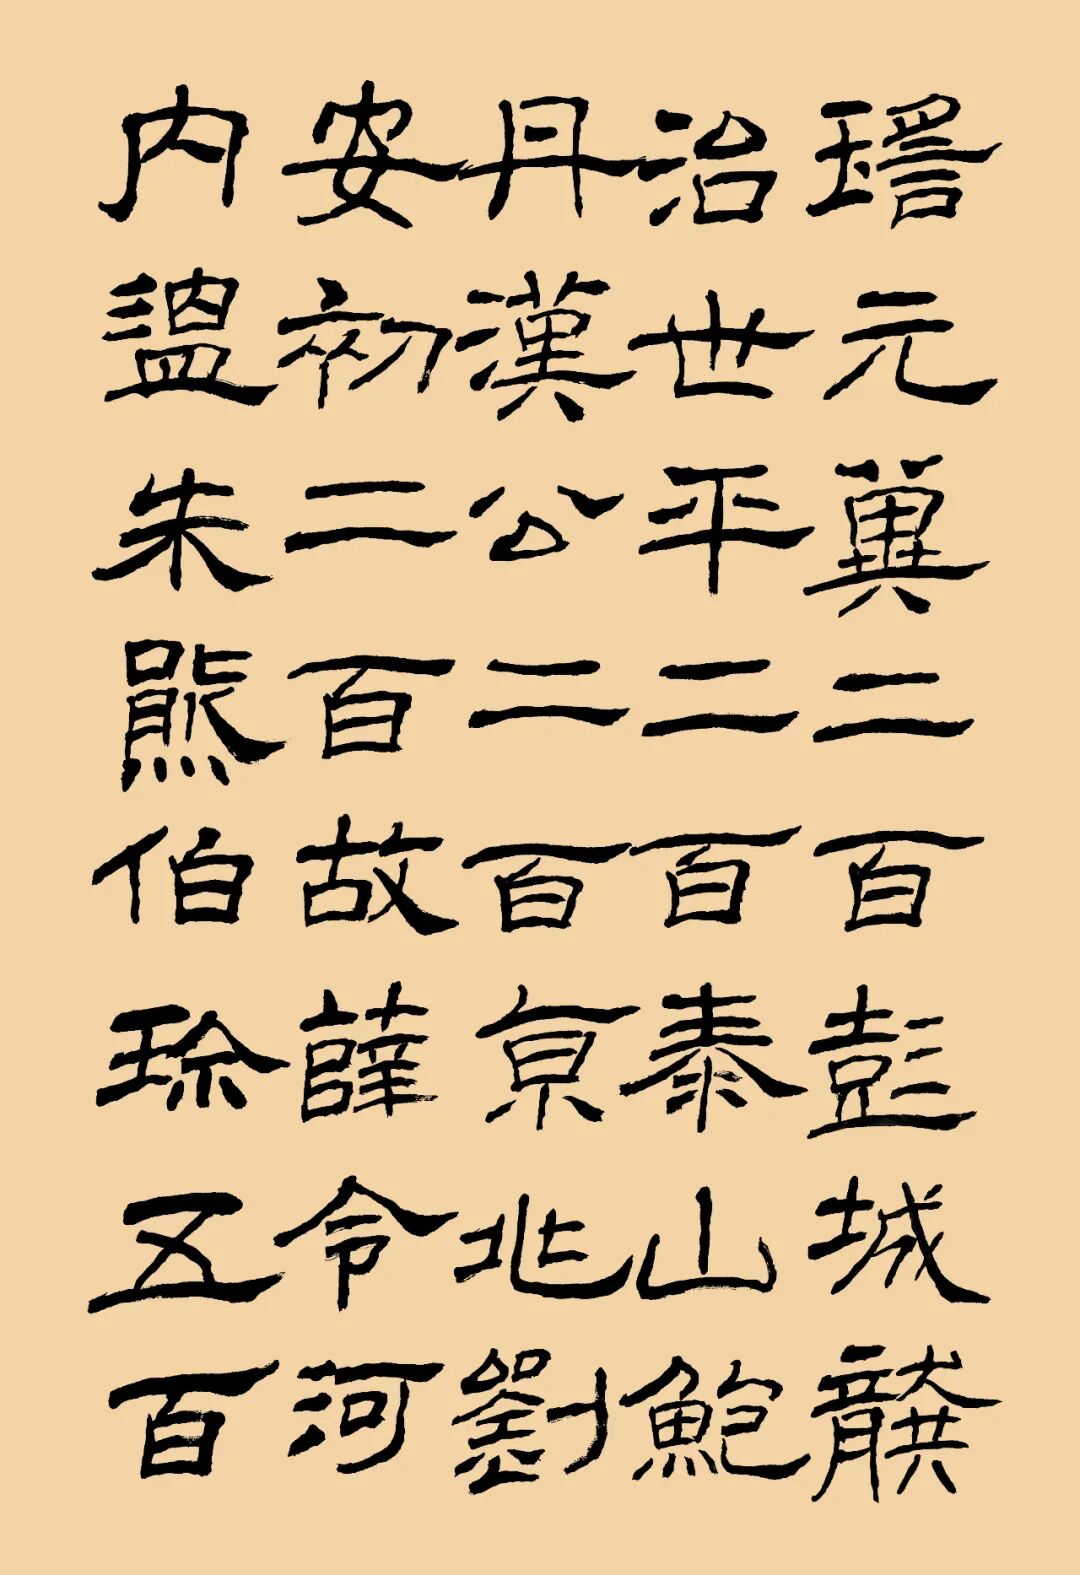 瑤元冀二百彭城龔
治世平二百泰山鮑
丹漢公二百京兆劉
安初二百故薛令河
内溫朱熊伯珍五百